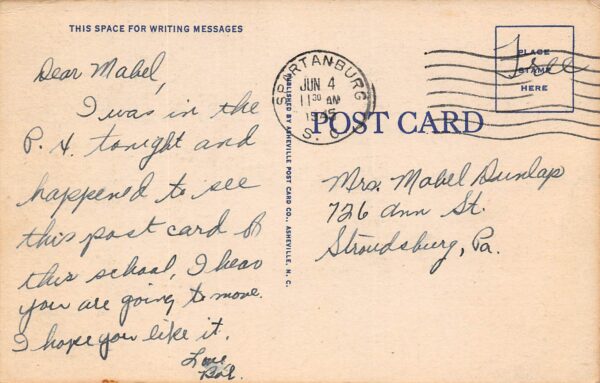 THIS SPACE FOR WRITING MESSAGES
Dear Mabel,
I was in the
P. X. tonight and
happened to see
this post card of
this school, I hear
you are going to move.
I hope you like it.
Love
Bob.
PUBLISHED BY ASHEVILLE POST CARD CO., ASHEVILLE, N. C.
SPARTANBURG
JUN 4
11 30 AM
1945
S. C.
POST CARD
PLACE
STAMP
HERE
Free
Mrs. Mabel Dunlap
726 Ann St.
Stroudsburg, Pa.